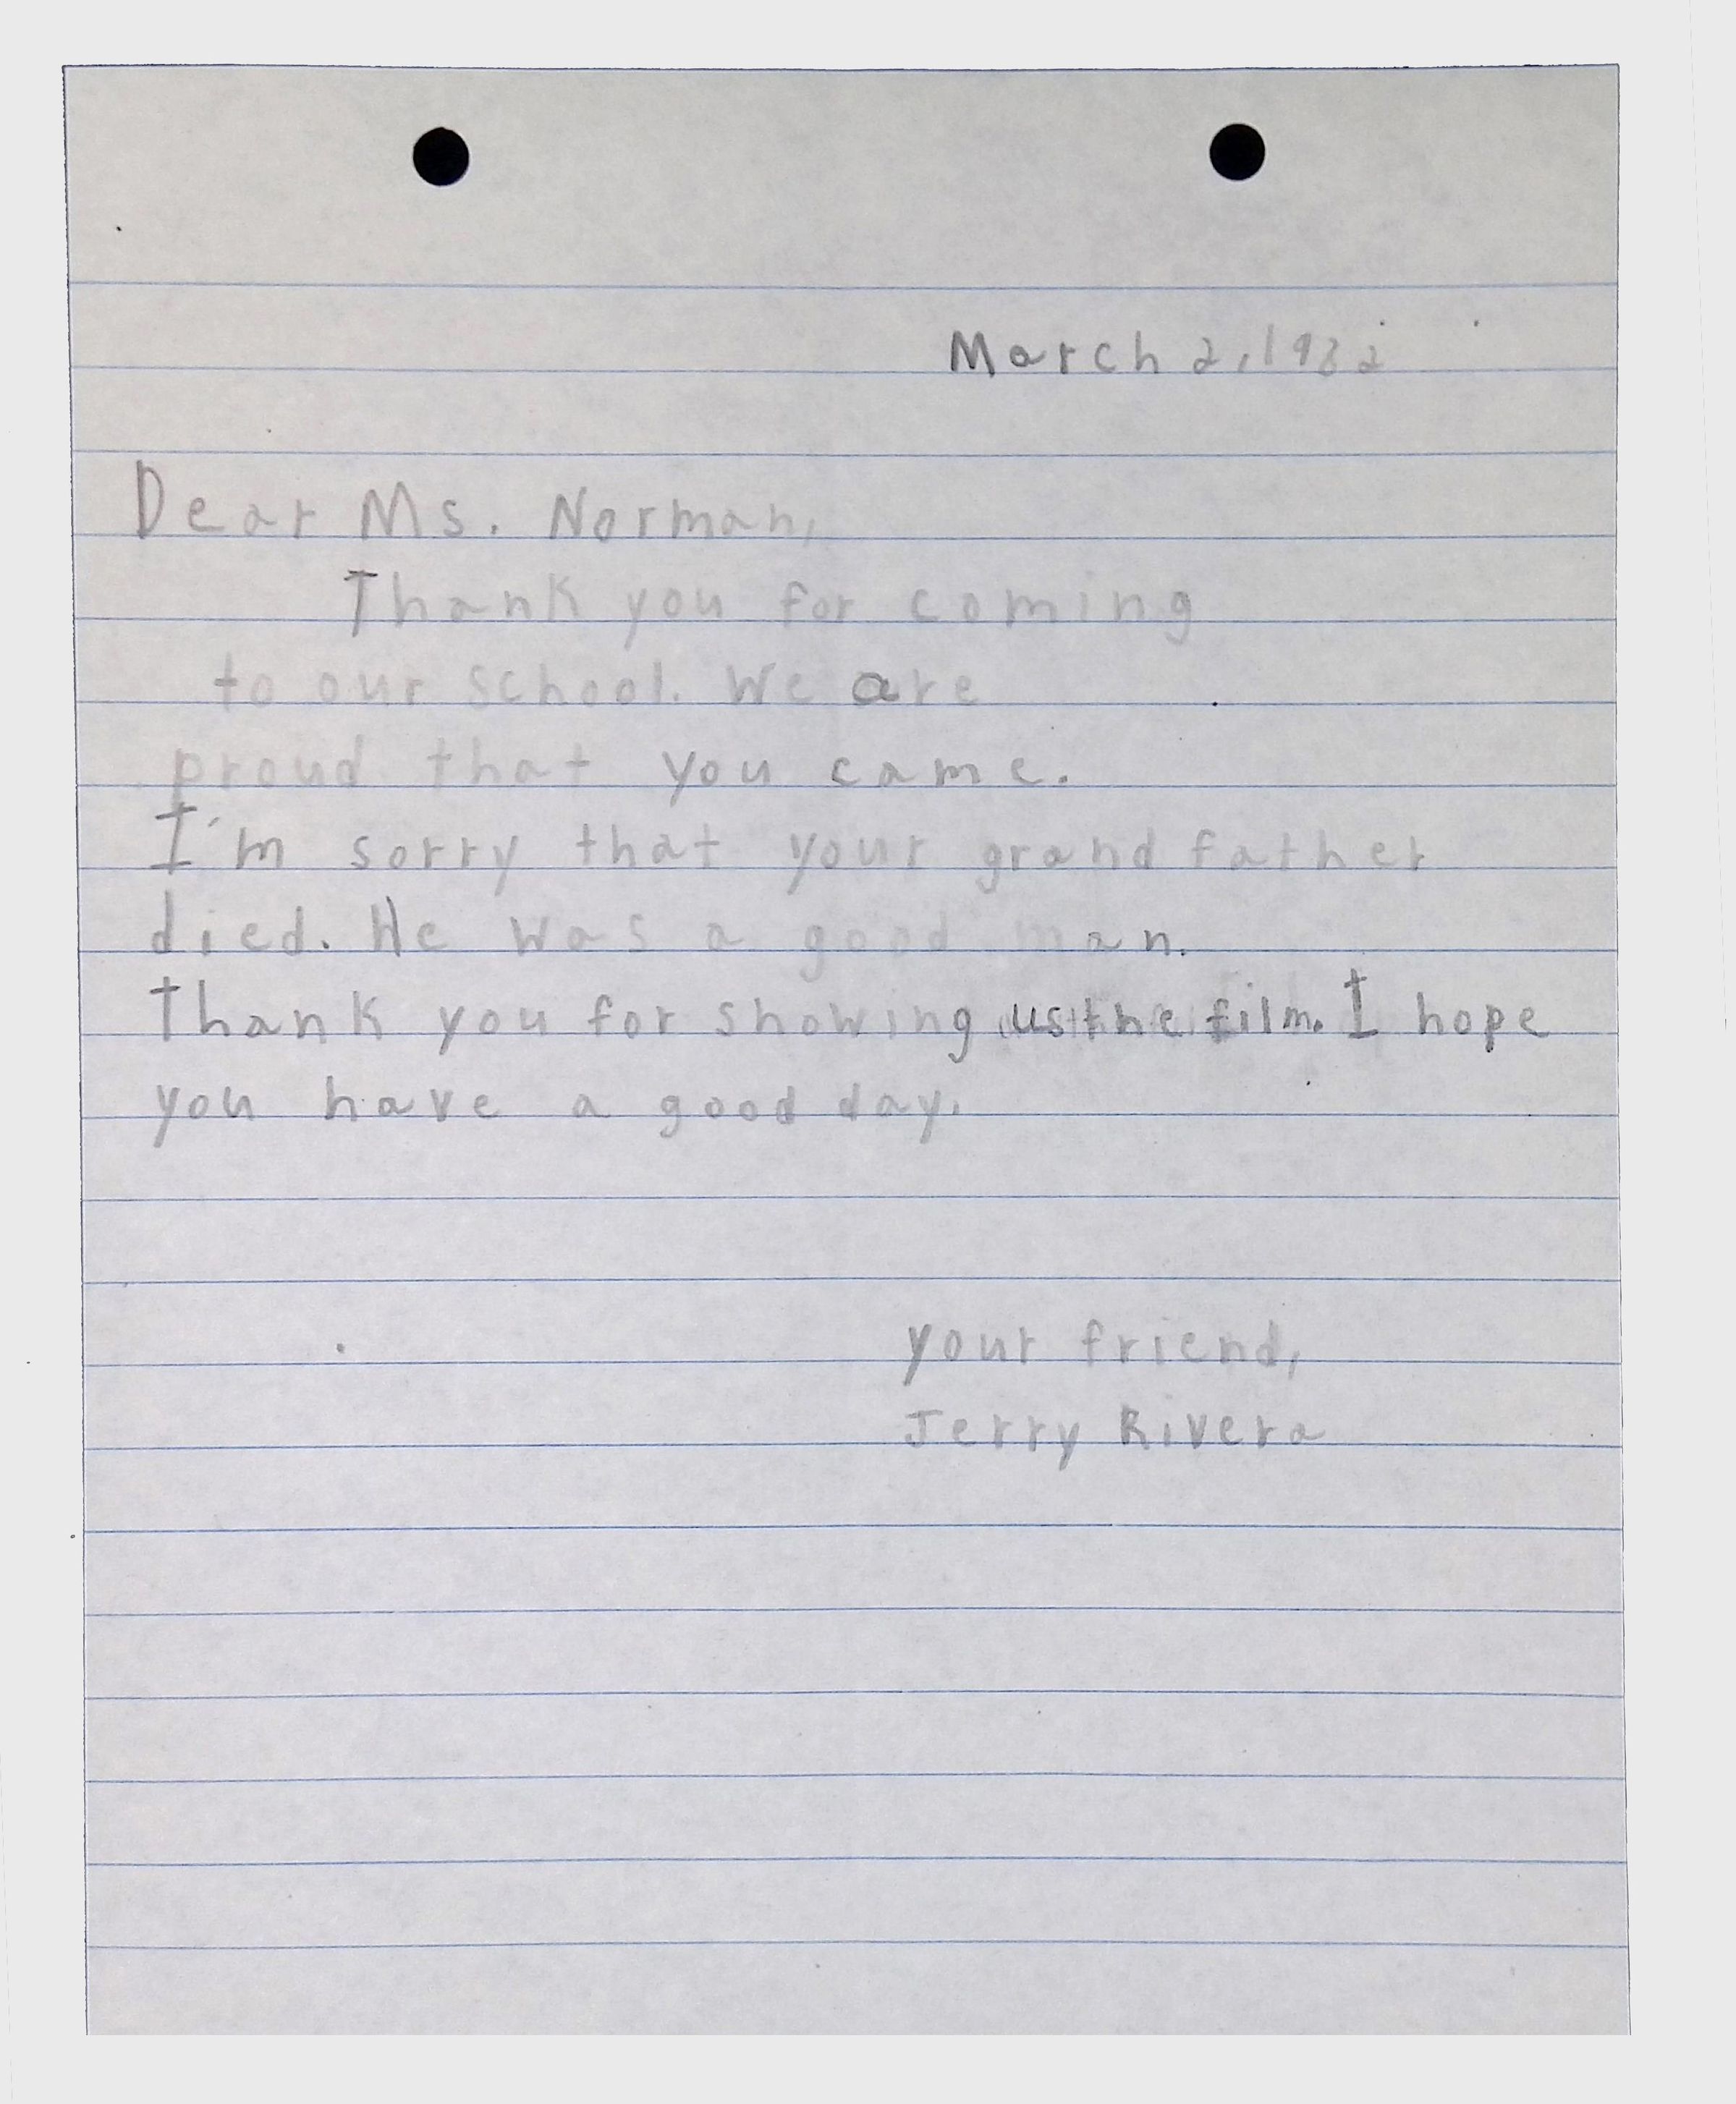 March 2, 1982
Dear Ms. Norman,
Thank you for coming
to our school. We are
proud that you came.
I'm sorry that your grandfather
died. He was a good man.
Thank you for showing us the film. I hope
you have a good day.
your friend,
Jerry Rivera